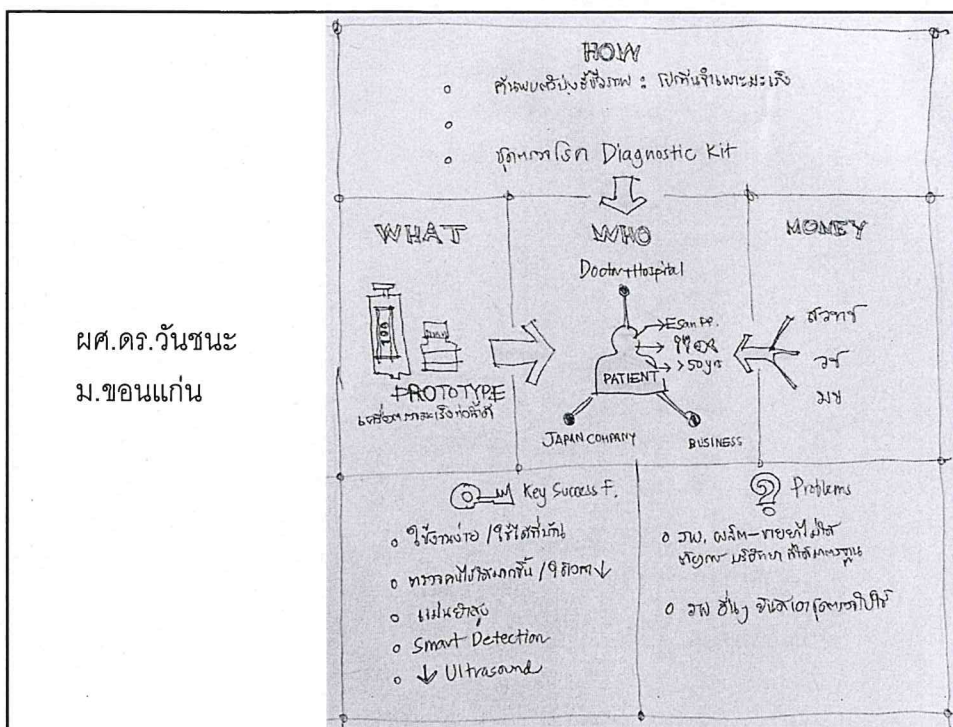 ผศ.ดร.วันชนะ
ม.ขอนแก่น
HOW
ค้นพบตัวบ่งชี้ชีวภาพ : โปรตีนจำเพาะมะเร็ง
ชุดตรวจโรค Diagnostic Kit
WHAT
PROTOTYPE
WHO
Doctor+Hospital
Esan PP.
>50 yrs
PATIENT
JAPAN COMPANY
BUSINESS
MONEY
สวทช
วช
มข
Key Success F.
ใช้งานง่าย / ใช้ได้ที่บ้าน
ตรวจคนไข้ได้มากขึ้น / ใช้เวลา ↓
แม่นยำสูง
Smart Detection
↓ Ultrasound
Problems
รพ. ผลิต-ขายยาไม่ได้
ต้องการ บริษัทยา ที่ได้มาตรฐาน
รพ อื่นๆ ยินดีเอาชุดตรวจไปใช้